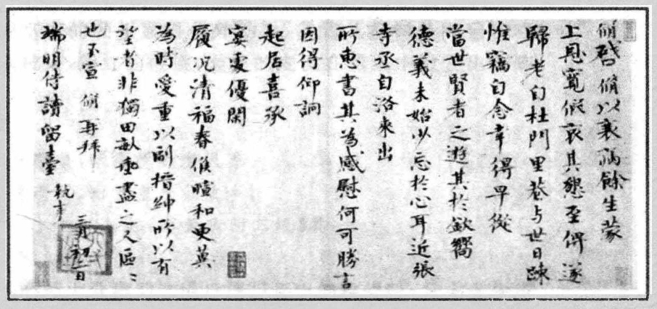 脩啓脩以衰病餘生蒙
上恩寬假哀其懇至俾遂
歸老自杜門里巷与世日疎
惟竊自念幸得早從
當世賢者之遊其於欽嚮
德義未始少忘於心耳近張
寺丞自洛來出
所惠書其為感慰何可勝言
因得仰詢
起居喜承
宴處優閑
履況清福春候暄和更冀
為時愛重以副搢紳所以有
望者非獨田畝垂盡之人區〻
也不宣 脩再拜
端明侍讀留臺 執事 三月初二日